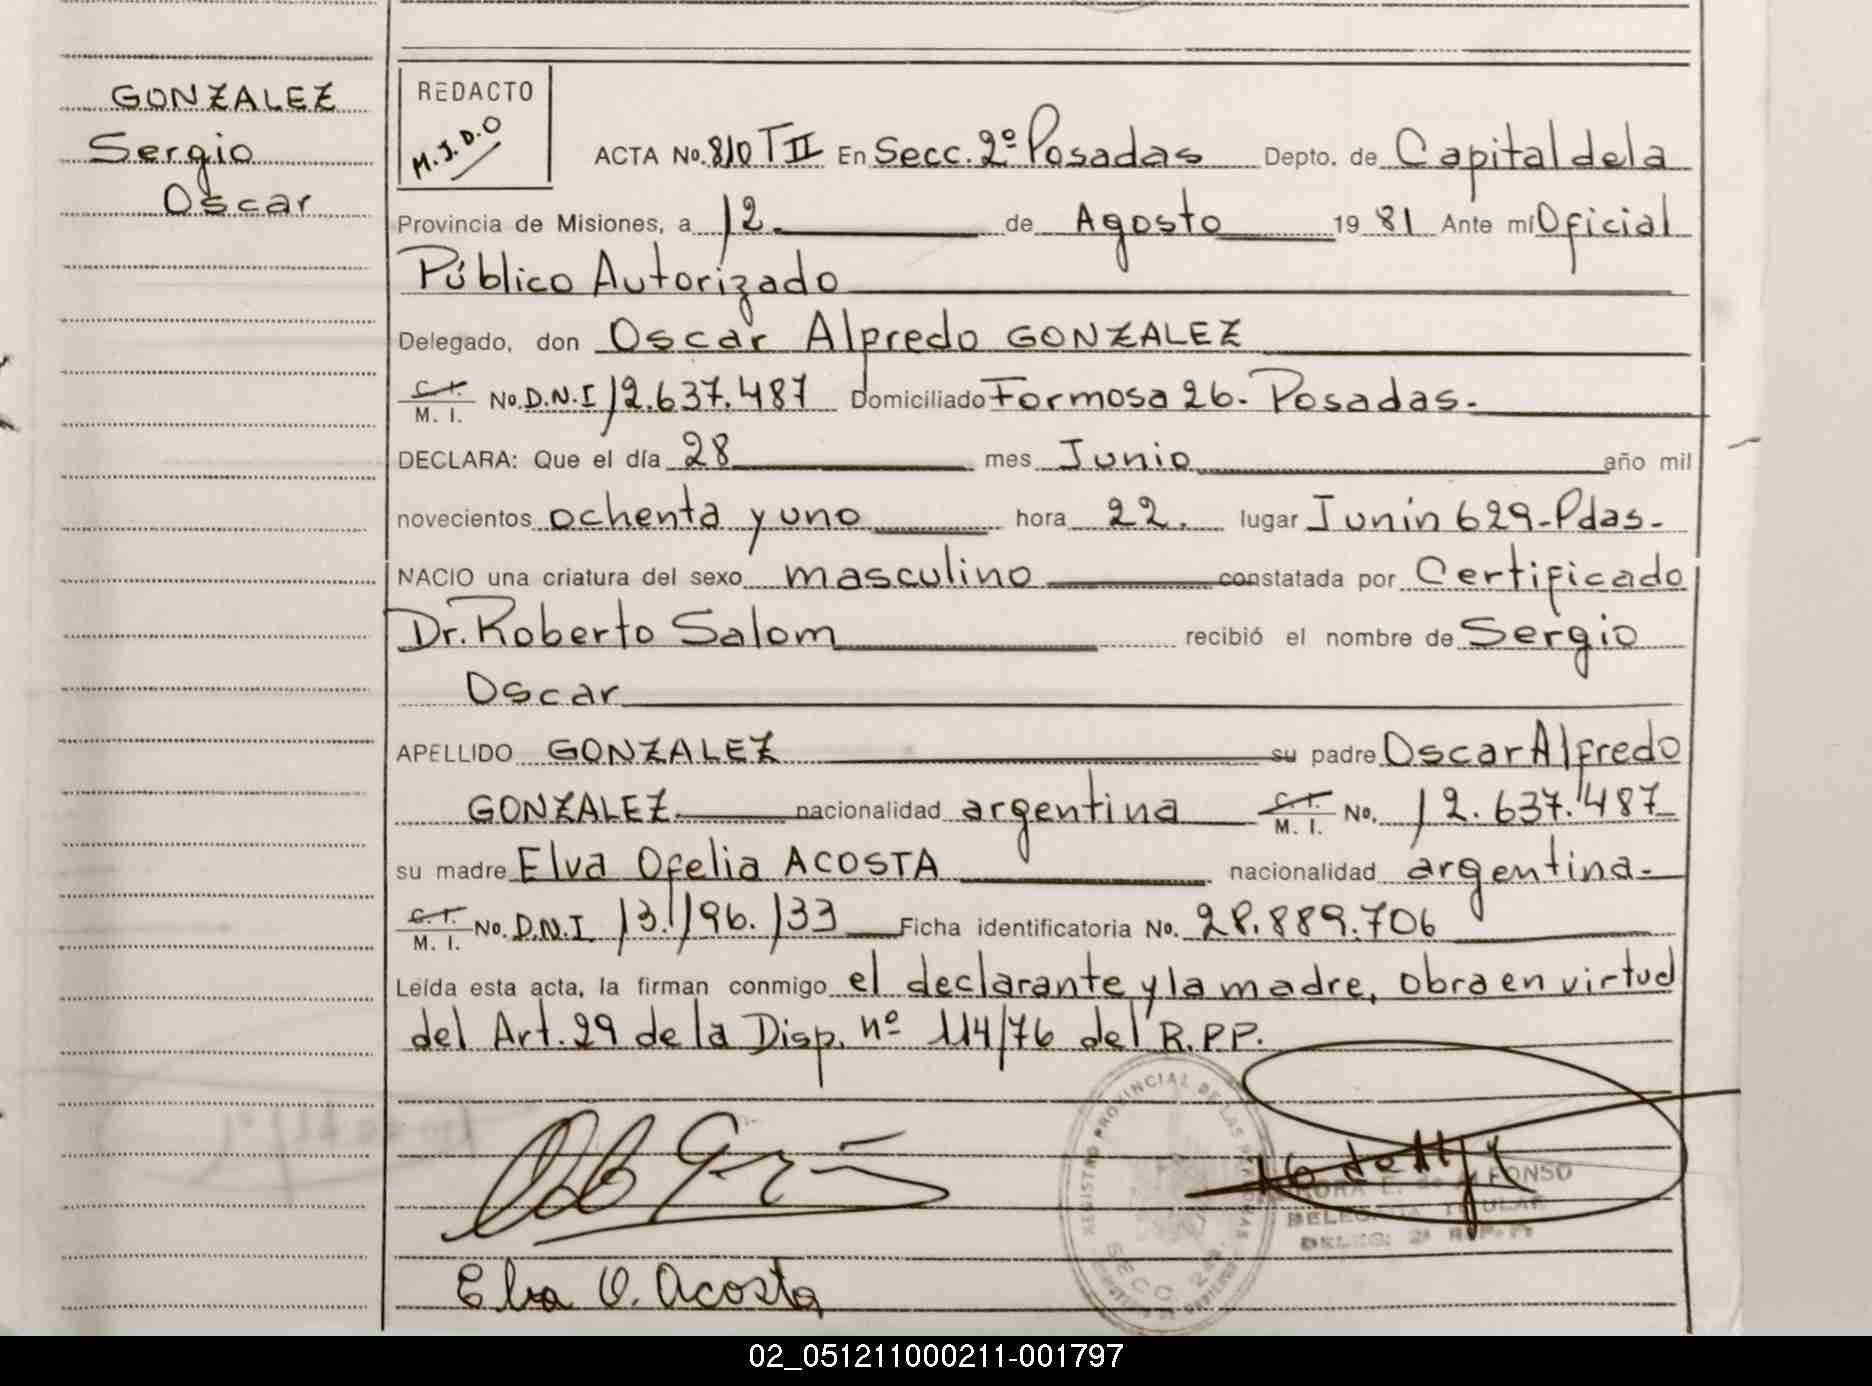 GONZALEZ
Sergio
Oscar
REDACTO
M.J.D.O
ACTA No. 810 T II En Secc. 2º Posadas Depto. de Capital de la
Provincia de Misiones, a 12 de Agosto 19 81 Ante mí Oficial
Público Autorizado
Delegado, don Oscar Alfredo GONZALEZ
C.I. M. I. No. D.N.I 12.637.487 Domiciliado Formosa 26. Posadas.
DECLARA: Que el día 28 mes Junio año mil
novecientos ochenta y uno hora 22. lugar Junin 629-Pdas.
NACIO una criatura del sexo masculino constatada por Certificado
Dr. Roberto Salom recibió el nombre de Sergio
Oscar
APELLIDO GONZALEZ su padre Oscar Alfredo
GONZALEZ nacionalidad argentina C.I. M. I. No. 12.637.487
su madre Elva Ofelia ACOSTA nacionalidad argentina.
C.I. M. I. No. D.N.I 13.196.133 Ficha identificatoria No. 28.889.706
Leída esta acta, la firman conmigo el declarante y la madre, obra en virtud
del Art. 29 de la Disp. nº 114/76 del R.P.P.
REGISTRO PROVINCIAL DE LAS PERSONAS
SECC. 2da.
DELEGADA TITULAR
DELEG. 2ª R.P.P.
Elva O. Acosta
02_051211000211-001797